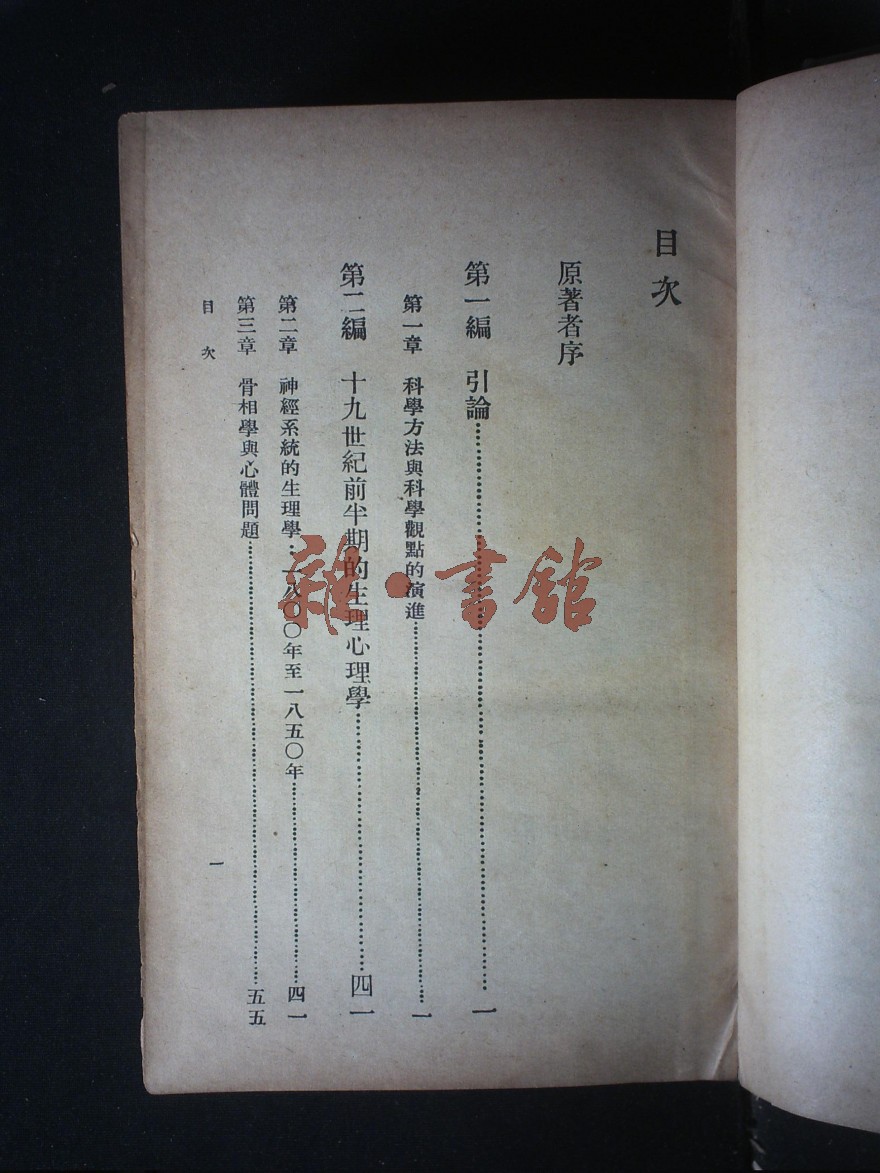 目次
原著者序
第一編 引論…………一
第一章 科學方法與科學觀點的演進…………一
第二編 十九世紀前半期的生理心理學…………四一
第二章 神經系統的生理學：一八〇〇年至一八五〇年…………四一
第三章 骨相學與心體問題…………五五
目次 一
雜·書館